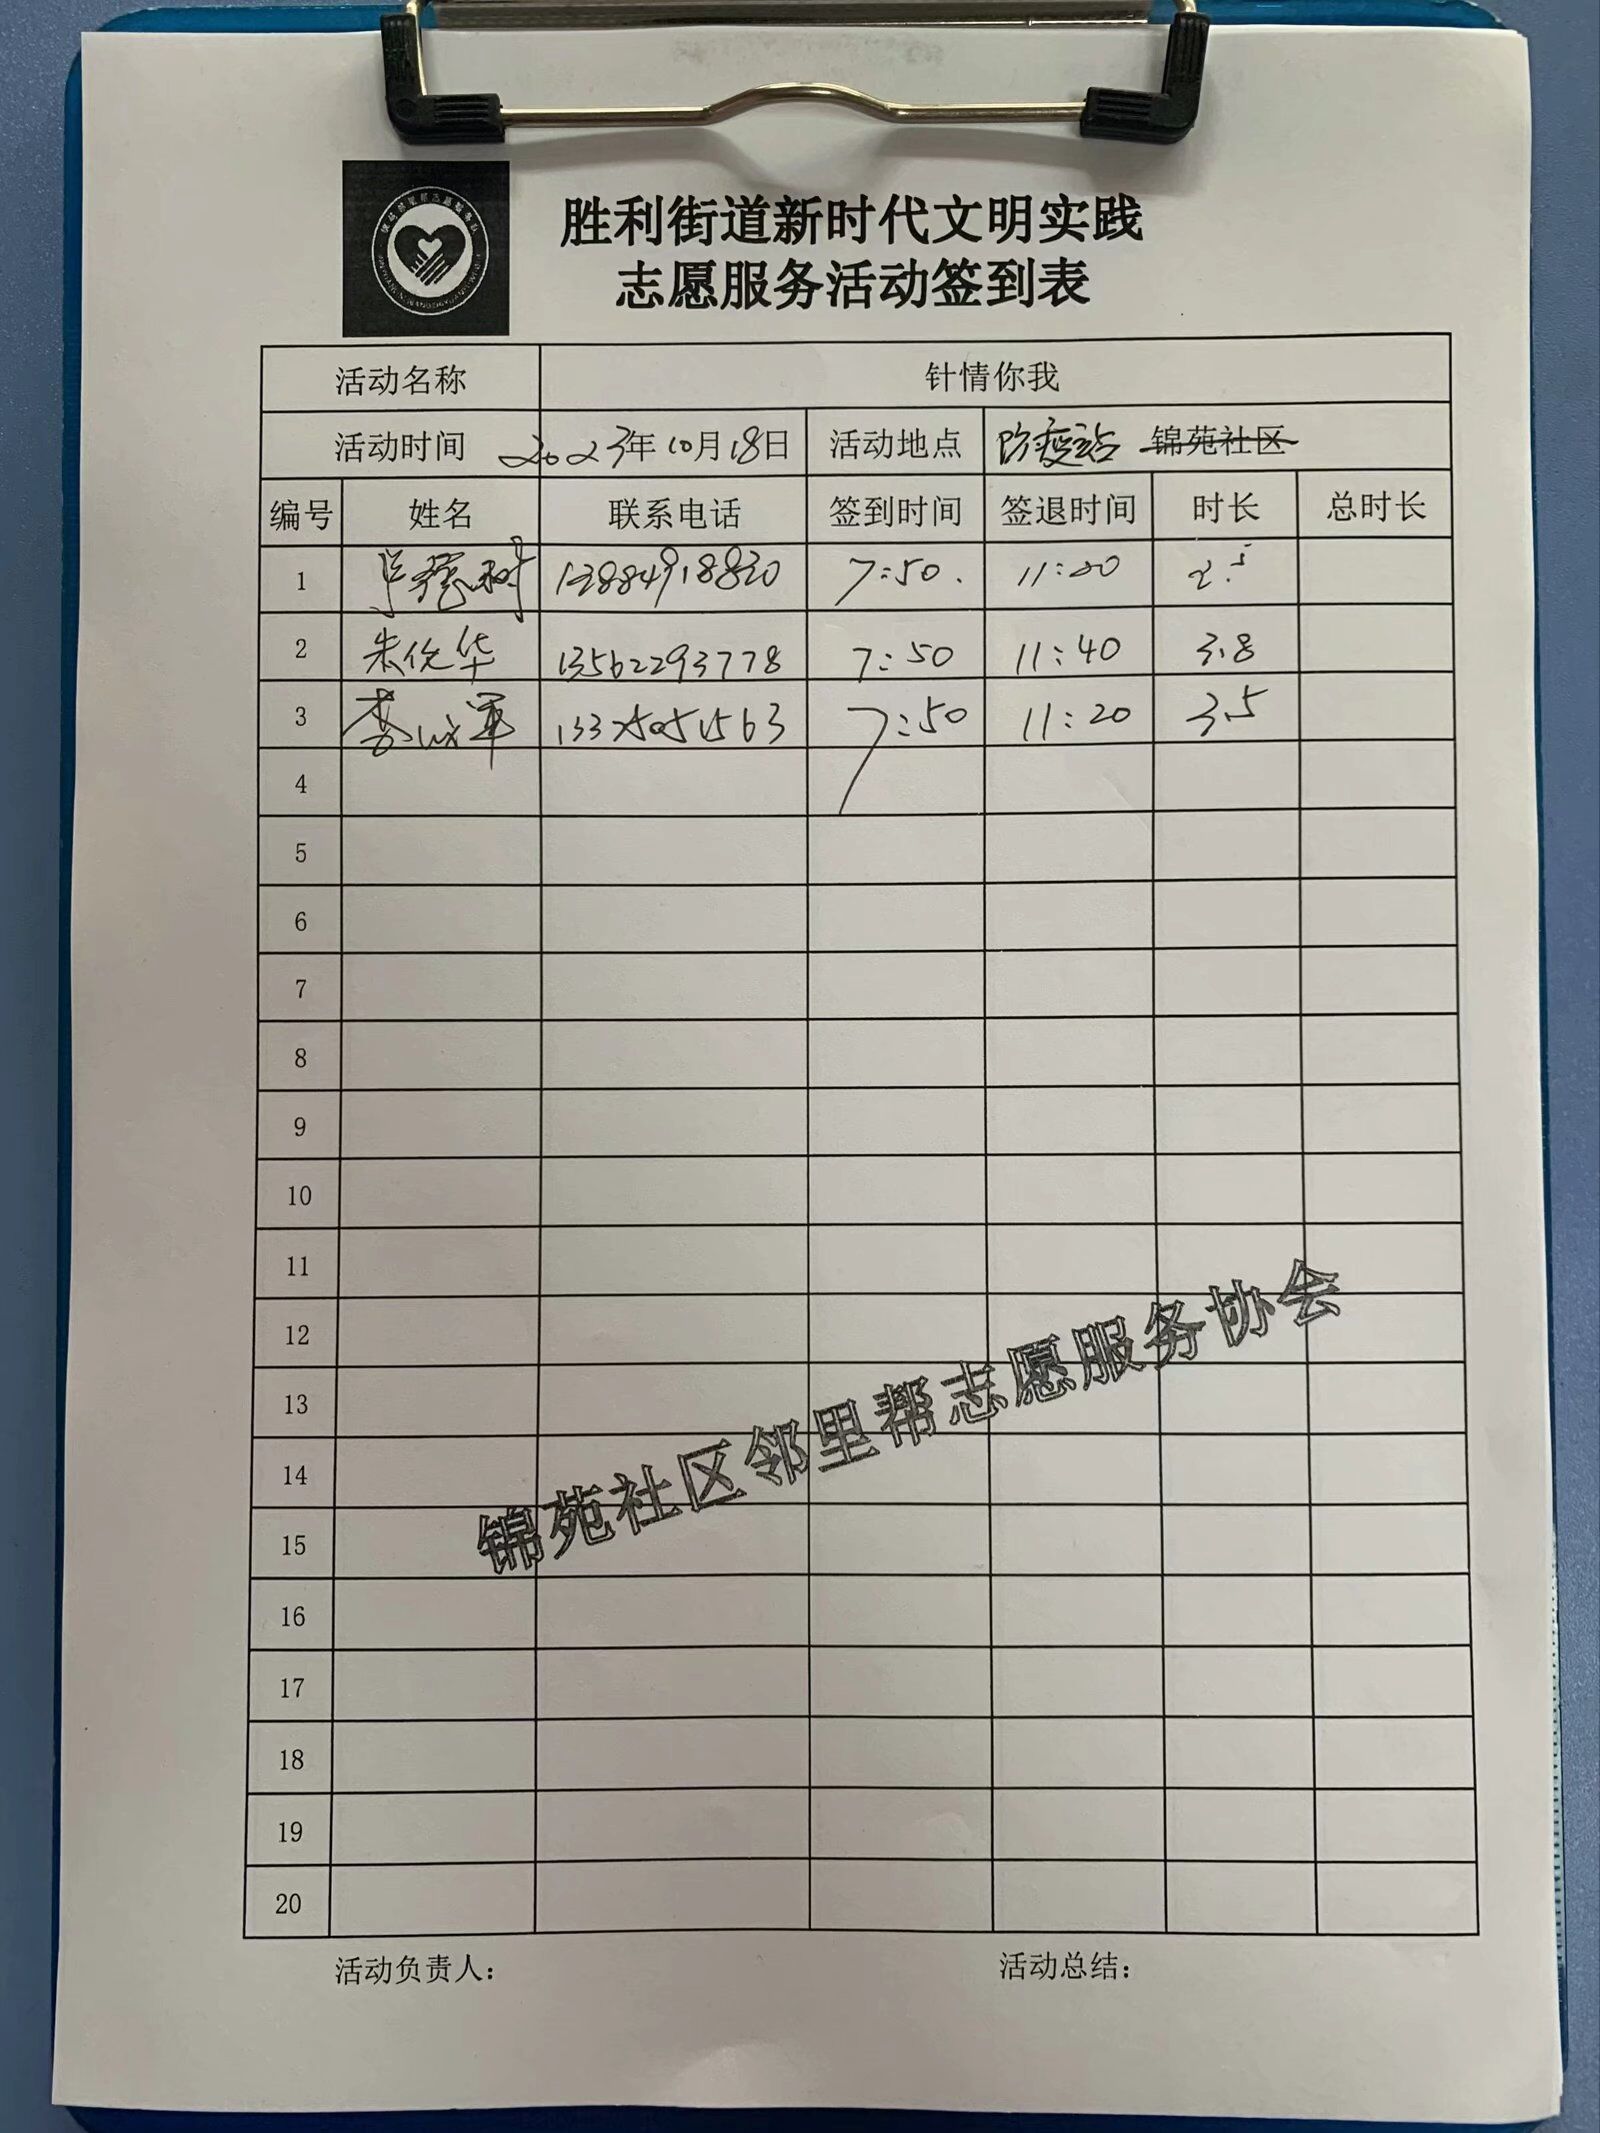 胜利街道新时代文明实践
志愿服务活动签到表
活动名称 针情你我
活动时间 2023年10月18日 活动地点 防疫站 锦苑社区
编号 姓名 联系电话 签到时间 签退时间 时长 总时长
1 7:50. 11:00 2.5
2 朱优华 13562293778 7:50 11:40 3.8
3 李成军 7:50 11:20 3.5
4
5
6
7
8
9
10
11
12
13
14
15
16
17
18
19
20
锦苑社区邻里帮志愿服务协会
活动负责人: 活动总结: